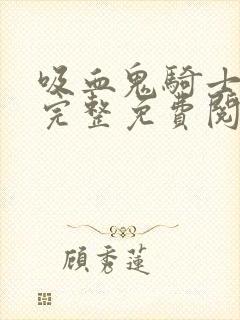 吸血鬼騎士
完整免費閱
顧秀蓮